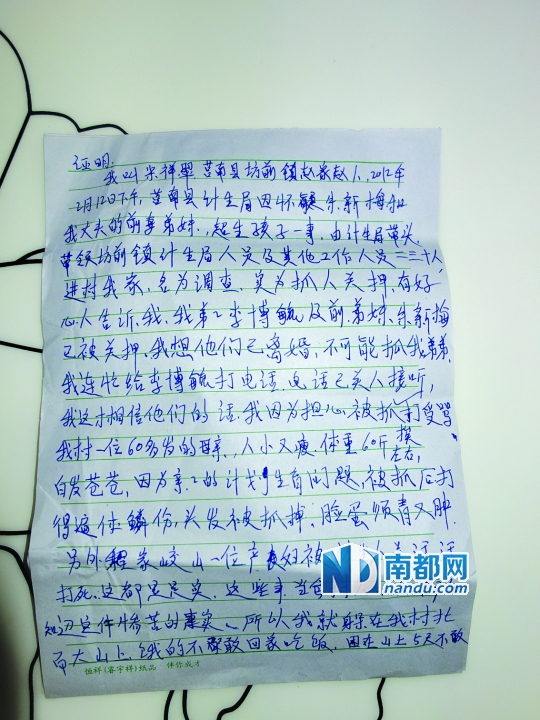 证明:
我叫 莒南县坊前镇赵家赵人、2012年
2月12日下午,莒南县计生局因怀疑朱新梅和
我丈夫的前妻弟妹,超生孩子一事,由计生局带头
带领坊前镇计生局人员及其他工作人员二三十人
进村我家,名为调查,实为抓人关押,有好
心人告诉我,我弟弟李博毓及前弟妹朱新梅
已被关押,我想他们已离婚,不可能抓我弟弟,
我连忙给李博毓打电话,电话已关人接听,
我这才相信他们的话,我因为担心被抓打受骂
我村一位60多岁的母亲,人小又瘦,体重60斤左右,
白发苍苍,因为亲 的计划生育问题,被抓后打
得遍体鳞伤,头发被抓掉,脸蛋 青又肿.
另外 家 山一位产妇被
打死,这都是足实,这些事
宗件惨苦的事实、所以我就躲在我村北
而大山上,饿的不敢回家吃饭,困在山上5天不敢
恒祥(睿宇祥)纸品 伴你成才
南都网
nandu.com